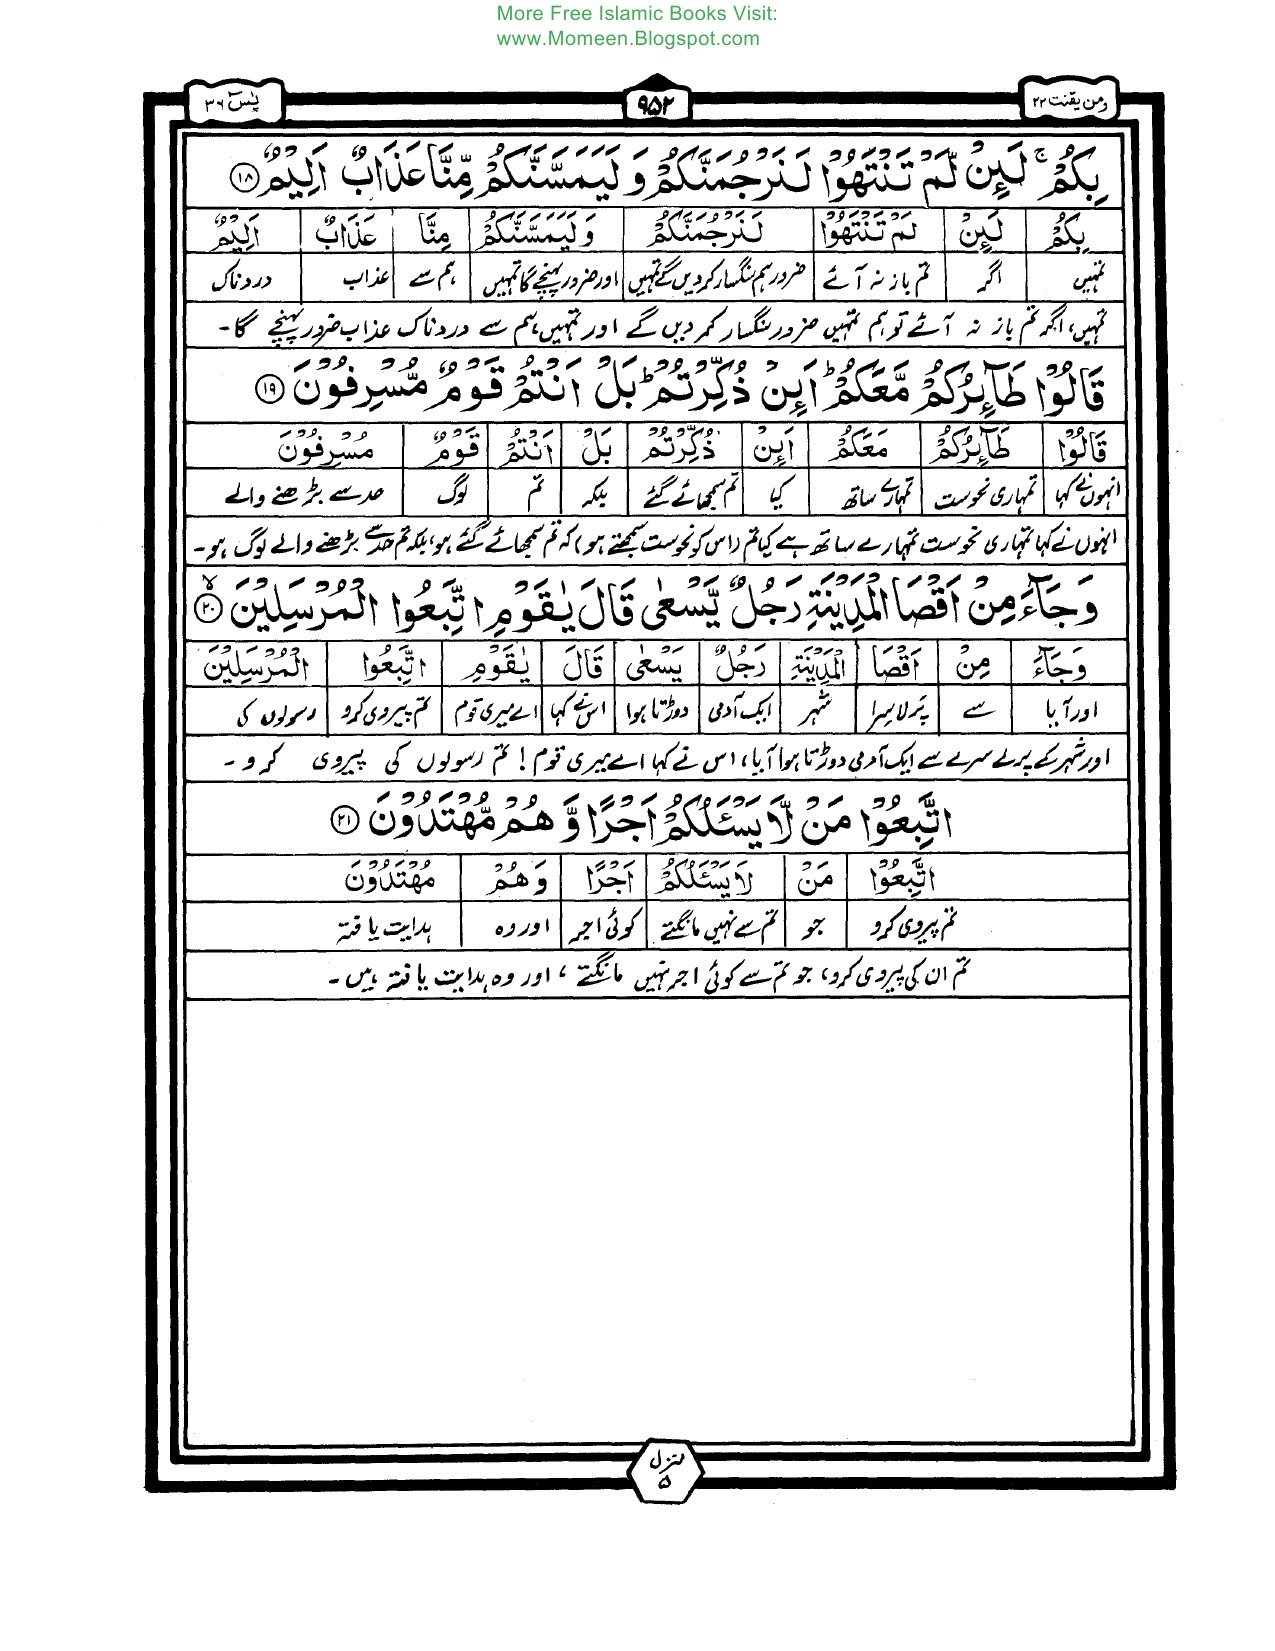 More Free Islamic Books Visit:
www.Momeen.Blogspot.com
ومن یقنت ۲۲ ۹۵۲ یٰسٓ ۳۶
بِكُمْ ۚ لَئِنْ لَّمْ تَنْتَهُوْا لَنَرْجُمَنَّكُمْ وَ لَيَمَسَّنَّكُمْ مِّنَّا عَذَابٌ اَلِيْمٌ ۝۱۸
بِكُمْ لَئِنْ لَمْ تَنْتَهُوْا لَنَرْجُمَنَّكُمْ وَلَيَمَسَّنَّكُمْ مِنَّا عَذَابٌ اَلِيْمٌ
تمہیں اگر تم باز نہ آئے ضرور ہم سنگسار کر دیں گے تمہیں اور ضرور پہنچے گا تمہیں ہم سے عذاب دردناک
تمہیں، اگر تم باز نہ آئے تو ہم تمہیں ضرور سنگسار کر دیں گے اور تمہیں ہم سے دردناک عذاب ضرور پہنچے گا۔
قَالُوْا طَآئِرُكُمْ مَّعَكُمْ ؕ اَئِنْ ذُكِّرْتُمْ ؕ بَلْ اَنْتُمْ قَوْمٌ مُّسْرِفُوْنَ ۝۱۹
قَالُوْا طَآئِرُكُمْ مَعَكُمْ اَئِنْ ذُكِّرْتُمْ بَلْ اَنْتُمْ قَوْمٌ مُسْرِفُوْنَ
انہوں نے کہا تمہاری نحوست تمہارے ساتھ کیا تم سمجھائے گئے بلکہ تم لوگ حد سے بڑھنے والے
انہوں نے کہا تمہاری نحوست تمہارے ساتھ ہے کیا تم (اس کو نحوست سمجھتے ہو) کہ تم سمجھائے گئے ہو، بلکہ تم حد سے بڑھنے والے لوگ ہو۔
وَ جَآءَ مِنْ اَقْصَا الْمَدِيْنَةِ رَجُلٌ يَّسْعٰى قَالَ يٰقَوْمِ اتَّبِعُوا الْمُرْسَلِيْنَ ۝۲۰ ۙ
وَجَآءَ مِنْ اَقْصَا الْمَدِيْنَةِ رَجُلٌ يَسْعٰى قَالَ يٰقَوْمِ اتَّبِعُوا الْمُرْسَلِيْنَ
اور آیا سے پرلا سرا شہر ایک آدمی دوڑتا ہوا اس نے کہا اے میری قوم تم پیروی کرو رسولوں کی
اور شہر کے پرلے سرے سے ایک آدمی دوڑتا ہوا آیا، اس نے کہا اے میری قوم! تم رسولوں کی پیروی کرو۔
اتَّبِعُوْا مَنْ لَّا يَسْـَٔلُكُمْ اَجْرًا وَّ هُمْ مُّهْتَدُوْنَ ۝۲۱
اتَّبِعُوْا مَنْ لَا يَسْـَٔلُكُمْ اَجْرًا وَهُمْ مُهْتَدُوْنَ
تم پیروی کرو جو تم سے نہیں مانگتے کوئی اجر اور وہ ہدایت یافتہ
تم ان کی پیروی کرو، جو تم سے کوئی اجر نہیں مانگتے، اور وہ ہدایت یافتہ ہیں۔
منزل
۵